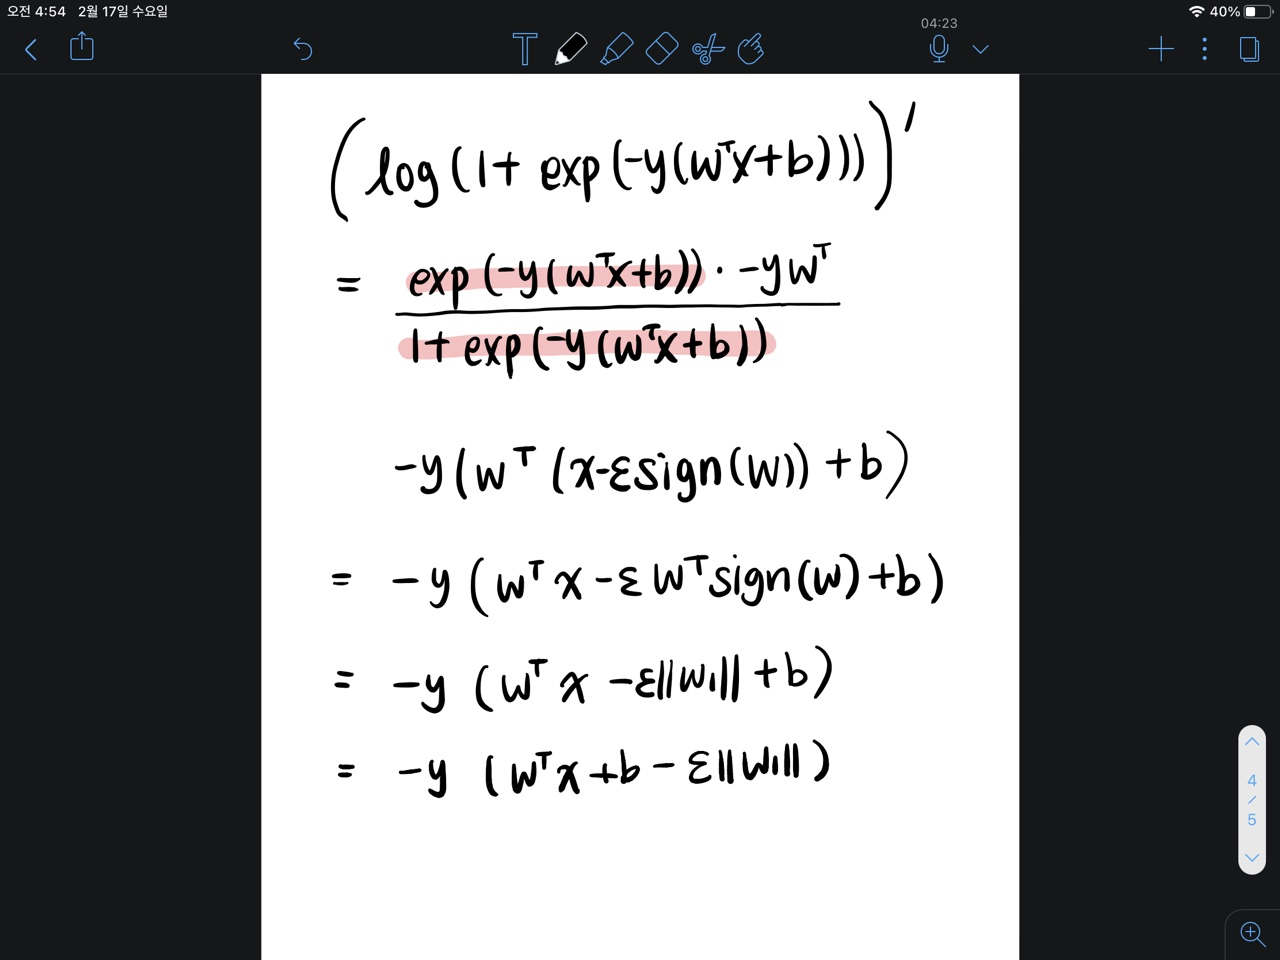 오전 4:54 2월 17일 수요일 40%
04:23
(log(1+ exp(-y(wᵀx+b))))′
= exp(-y(wᵀx+b)) · -ywᵀ
1+ exp(-y(wᵀx+b))
-y(wᵀ(x-εsign(w)) +b)
= -y(wᵀx -εwᵀsign(w)+b)
= -y (wᵀx -ε||w₁|| +b)
= -y (wᵀx+b - ε||w₁||)
4
/
5